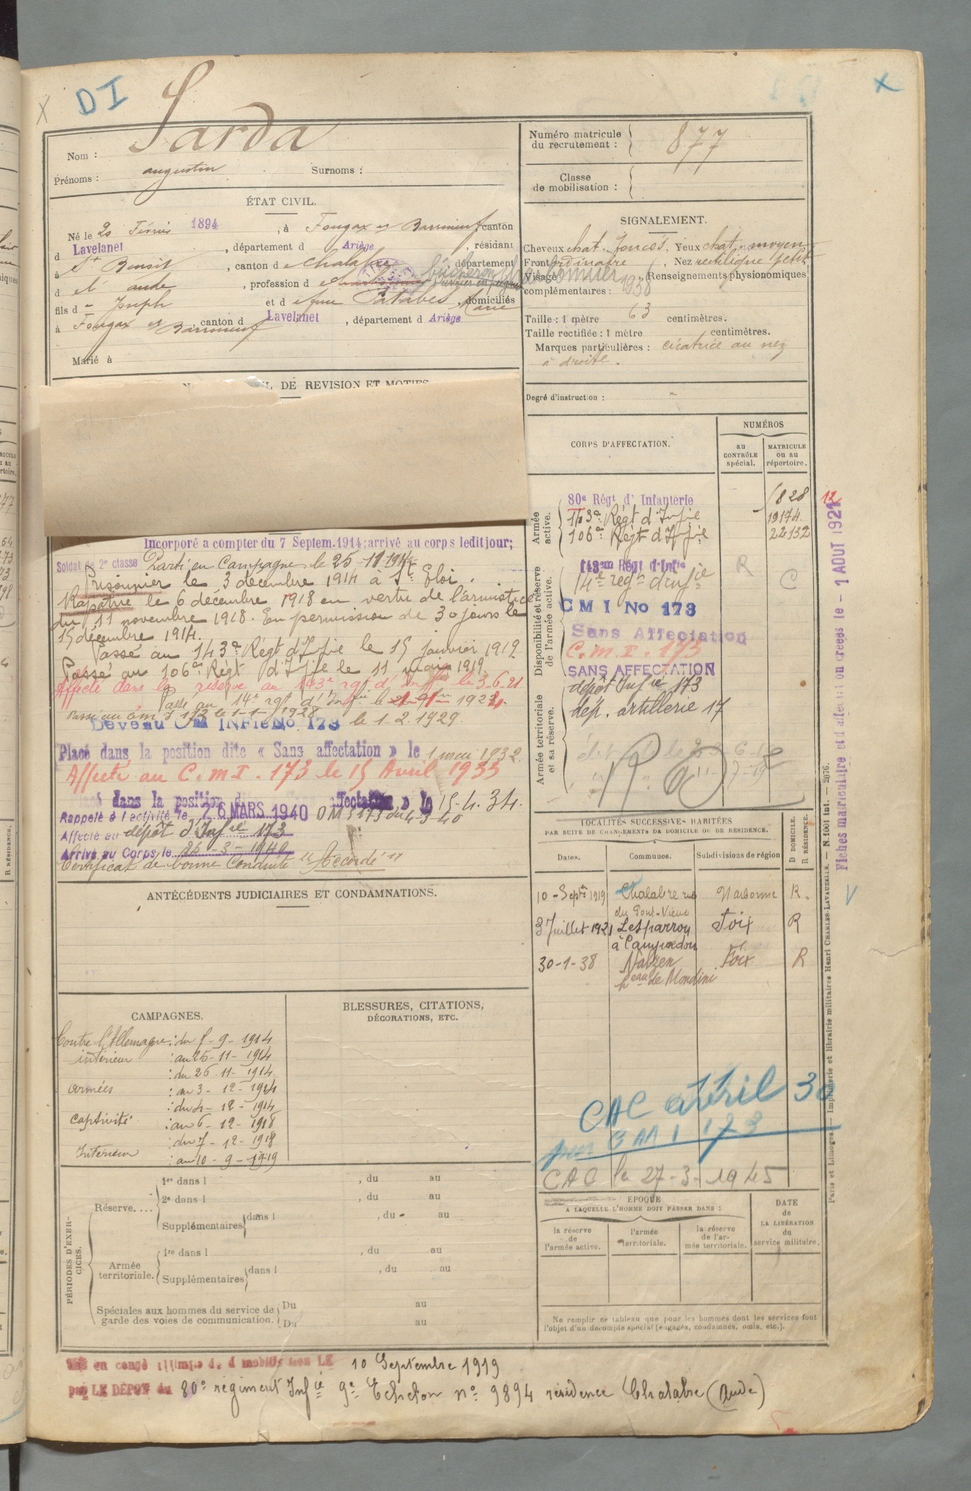 DI
Nom : Sarda
Prénoms : augustin Surnoms :
Numéro matricule
du recrutement : 877
Classe
de mobilisation :
ÉTAT CIVIL.
Né le 20 Février 1894, à Fougax et Barrineuf canton
d Lavelanet, département d Ariège, résidant
à St Benoit, canton d e Chalabre, département
d el aude, profession d e
fils d e Joseph et d e feue Marie, domiciliés
à Fougax et Barrineuf canton d Lavelanet, département d Ariège
Marié à
SIGNALEMENT.
Cheveux chat. foncés. Yeux chat. moyen
Front ordinaire, Nez rectiligne petit
Visage Renseignements physionomiques
complémentaires : 1938
Taille : 1 mètre 63 centimètres.
Taille rectifiée : 1 mètre centimètres.
Marques particulières : cicatrice au nez
à droite.
Degré d'instruction :
DE REVISION ET MOTIFS
CORPS D'AFFECTATION.
NUMÉROS
AU CONTRÔLE spécial.
MATRICULE ou au répertoire.
Armée active.
80e Régt d'Infanterie
143e Régt d'Infie 19174
106e Régt d'Infie 22152
Disponibilité et réserve de l'armée active.
14e regt d'infie
R C
CMI No 173
Sans Affectation
C.M.I. 173
SANS AFFECTATION
Armée territoriale et sa réserve.
dépôt Infie 173
dep. artillerie 17
Incorporé a compter du 7 Septem. 1914; arrivé au corps ledit jour;
Soldat de 2e classe Parti en Campagne le 25-11-1914
Prisonnier le 3 décembre 1914 à St Eloi.
Rapatrié le 6 décembre 1918 en vertu de l'armistice
du 11 novembre 1918. En permission de 30 jours le
15 décembre 1914.
Passé au 143e Régt d'Infie le 15 janvier 1919
Passé au 106e Régt d'Infie le 11 mars 1919
Affecté dans la réserve au 143e rgt d'Infie le 3.6.21
Passé au 14e rgt d'Infie le
Devenu CM INFie No 173 le 1.2.1929
Placé dans la position dite « Sans affectation » le 1 mai 1932
Affecté au C.M.I. 173 le 15 Avril 1933
Placé dans la position dite Sans affectation » le 15.4.34.
Rappelé à l'activité le 26 MARS 1940
Affecté au dépôt d'Infie 173
Arrivé au Corps le 26-3-1940
Certificat de bonne Conduite "Accordé"
ANTÉCÉDENTS JUDICIAIRES ET CONDAMNATIONS.
LOCALITÉS SUCCESSIVES HABITÉES
PAR SUITE DE CHANGEMENTS DE DOMICILE OU DE RÉSIDENCE.
Dates. Communes. Subdivisions de région D DOMICILE. R RÉSIDENCE.
10-Septre 1919 Chalabre rue Narbonne R.
du Pont-Vieux
3 Juillet 1921 Lesparrou Foix R
à Campredon
30-1-38 Nalzen Foix R
CAMPAGNES.
Contre l'Allemagne : du 7-9-1914
intérieur : au 25-11-1914
: du 26-11-1914
Armées : au 3-12-1914
: du 4-12-1914
Captivité : au 6-12-1918
: du 7-12-1918
Intérieur : au 10-9-1919
BLESSURES, CITATIONS,
DÉCORATIONS, ETC.
CAC avril 30
CAC le 27-3-1945
PÉRIODES D'EXERCICES.
Réserve....
1re dans l , du au
2e dans l , du au
Supplémentaires dans l , du au
Armée territoriale.
1re dans l , du au
Supplémentaires dans l , du au
Spéciales aux hommes du service de garde des voies de communication. Du au
Du au
ÉPOQUE
A LAQUELLE L'HOMME DOIT PASSER DANS :
la réserve de l'armée active.
l'armée territoriale.
la réserve de l'armée territoriale.
DATE de LA LIBÉRATION du service militaire.
Ne remplir ce tableau que pour les hommes dont les services font
l'objet d'un décompte spécial (engagés, condamnés, omis, etc.).
Mis en congé illimité de démobilisation LE 10 Septembre 1919
par LE DÉPOT du 80e régiment Infie 9e Echelon no 9894 résidence Chalabre (Aude)
Fiches matriculaire et d'affectation créées le - 1 AOUT 1921
Paris et Limoges. — Imprimerie et librairie militaires Henri CHARLES-LAVAUZELLE.